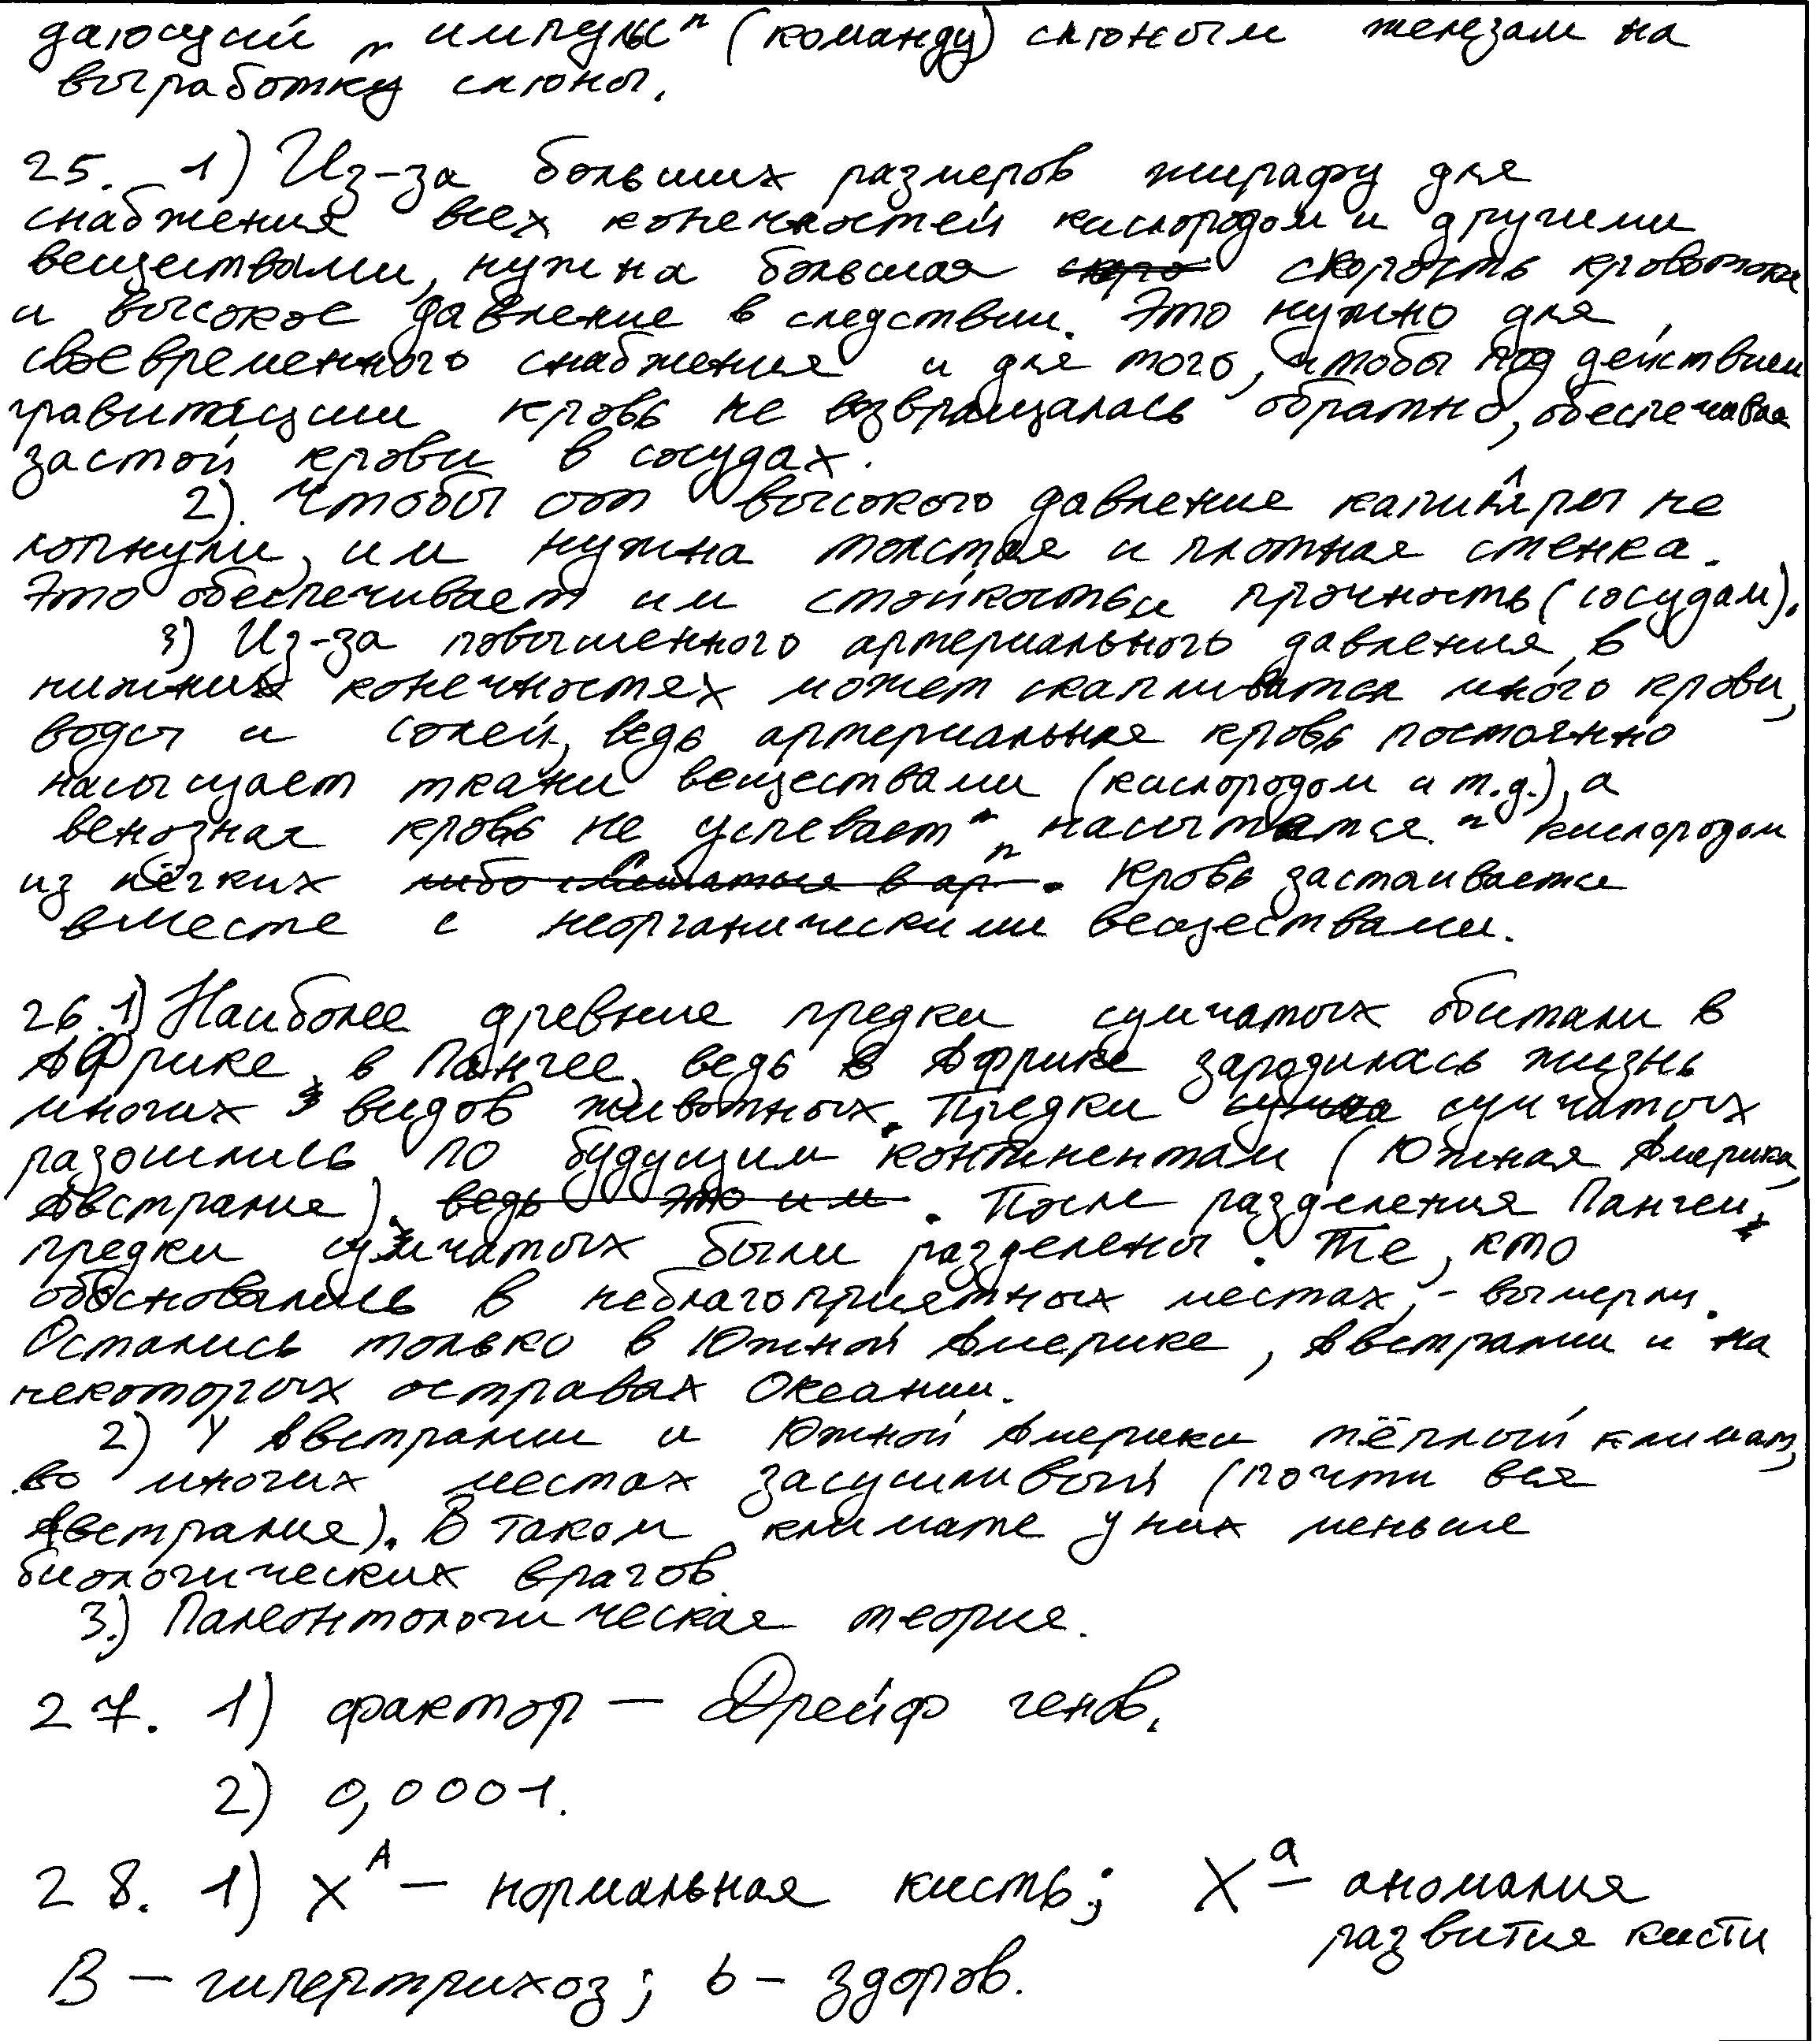 дающий „импульс" (команду) слюным железам на
выработку слюны.
25. 1) Из-за больших размеров жирафу для
снабжения всех конечностей кислородом и другими
веществами, нужна большая скоро скорость кровотока
и высокое давление в следствии. Это нужно для
своевременного снабжения и для того, чтобы под действием
гравитации кровь не возвращалась обратно, обеспечивая
застой крови в сосудах.
2). Чтобы от высокого давление капилляры не
лопнули, им нужна толстая и плотная стенка.
Это обеспечивает им стойкость и прочность (сосудам).
3) Из-за повышенного артериального давления, в
нижних конечностях может скапливатся много крови,
воды и солей, ведь артериальная кровь постоянно
насыщает ткани веществами (кислородом и т.д.), а
венозная кровь не успевает „насытится" кислородом
из лёгких либо смешаться в ар. Кровь застаивается
вместе с неорганическими веществами.
26.1) Наиболее древние предки сумчатых обитали в
Африке, в Пангее, ведь в Африке зародилась жизнь
многих видов животных. Предки сумча сумчатых
разошлись по будущим континентам (Южная Америка,
Австралия). ведь это им. После разделения Пангеи,
предки сумчатых были разделены. Те, кто
обосновались в неблагоприятных местах, - вымерли.
Остались только в Южной Америке, Австралии и на
некоторых остравах Океании.
2) У Австралии и Южной Америки тёплый климат,
во многих местах засушливый (почти вся
Австралия). В таком климате у них меньше
биологических врагов.
3.) Палеонтологическая теория.
27. 1) фактор — Дрейф генов.
2) 0,0001.
28. 1) X^A — нормальная кисть; X^a — аномалия
развития кисти
B — гипертрихоз; b — здоров.